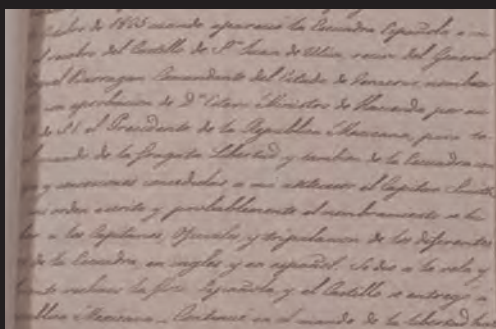 de 1825 cuando apareció la Escuadra Española a su
del Castillo de Sn Juan de Ulúa, del General
Barragan Comandante del Estado de Veracruz
aprobacion de Dn Esteva Ministro de Hacienda por
de S.E. el Presidente de la Republica Mexicana, para
mando de la fragata Libertad y tambien de la Escuadra
y concedidas a mi antecesor el Capitan Smith
orden escrita y probablemente el nombramiento se
a los Capitanes, Oficiales, y tripulacion de los diferentes
de la Escuadra, en ingles y en español. Se dio a la vela y
la Española y el Castillo se entrego a
Mexicana. Continue en el mando de la Libertad